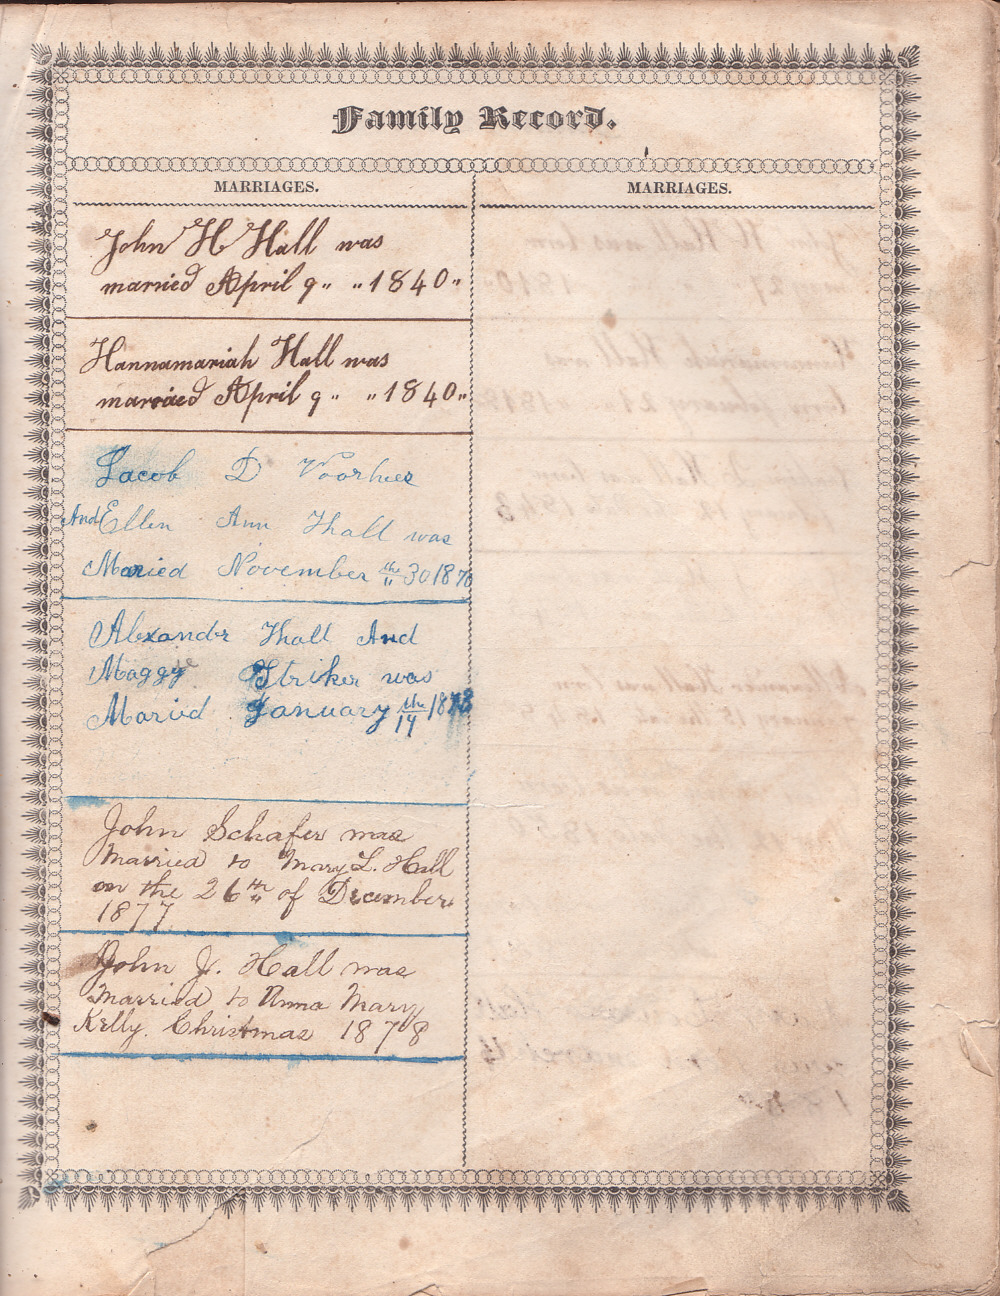 Family Record.
MARRIAGES.
John H Hall was
married April 9〃 〃1840〃
Hannamariah Hall was
married April 9〃 〃1840〃
Jacob D Voorhies
And Ellen Ann Hall was
Maried November the 30 1870
Alexander Hall And
Maggye Striker was
Maried January the 14 1873
John Schafer was
Married to Mary L. Hall
on the 26th of December
1877
John J. Hall was
Married to Anna Mary
Kelly. Christmas 1878
MARRIAGES.